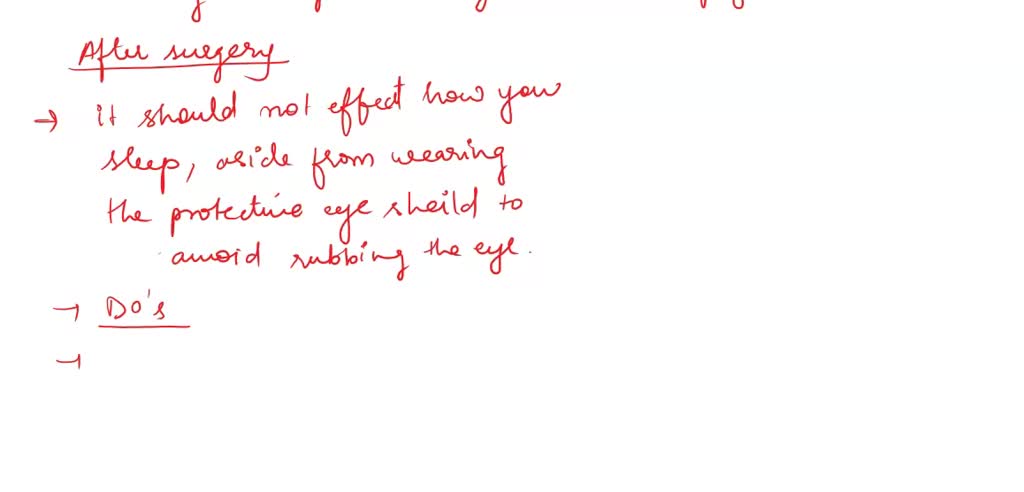 After surgery
→ it should not effect how you
sleep, aside from wearing
the protective eye sheild to
avoid rubbing the eye.
→ Do's
→